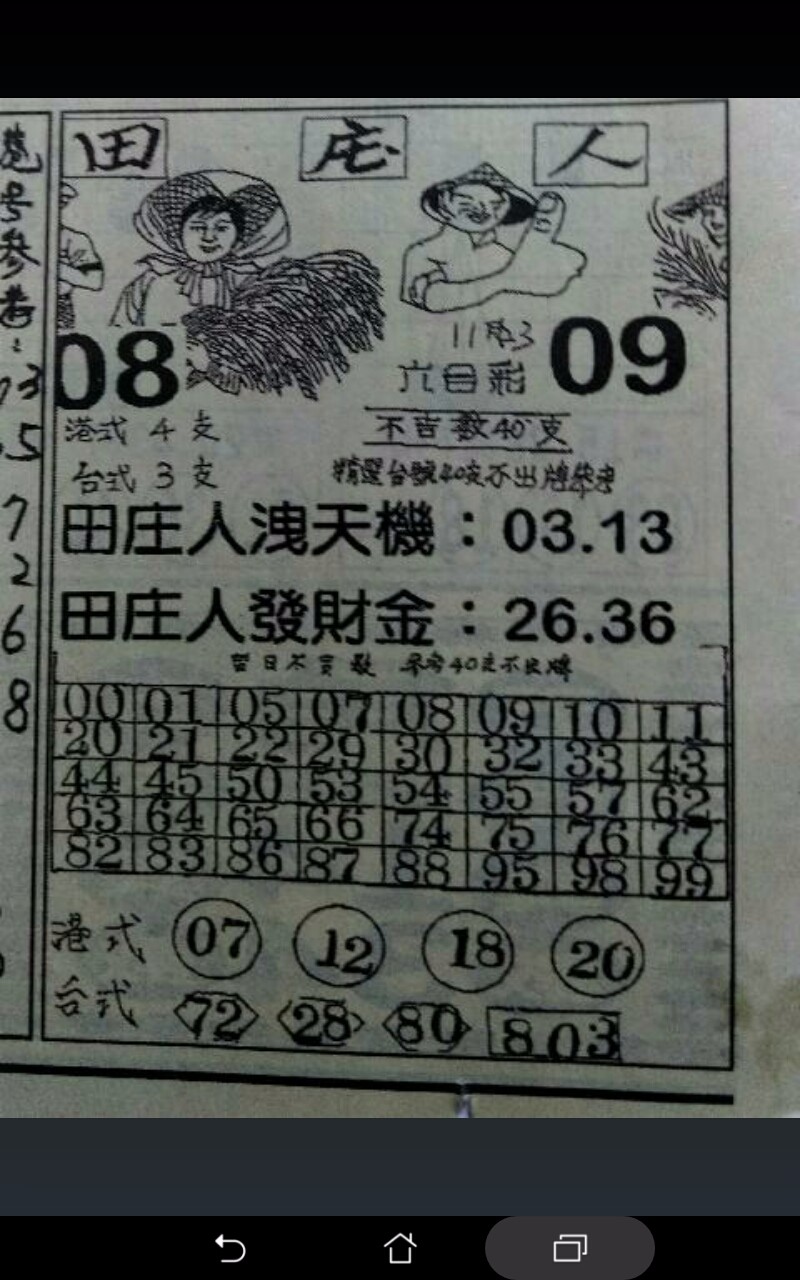 田 庄 人
08
09
六合彩
港式 4 支
不吉數40支
台式 3 支
精選台號40支不出牌參考
田庄人洩天機：03.13
田庄人發財金：26.36
00 01 05 07 08 09 10 11
20 21 22 29 30 32 33 43
44 45 50 53 54 55 57 62
63 64 65 66 74 75 76 77
82 83 86 87 88 95 98 99
港式 07 12 18 20
台式 72 28 80 803
號
參
考
:
5
7
2
6
8